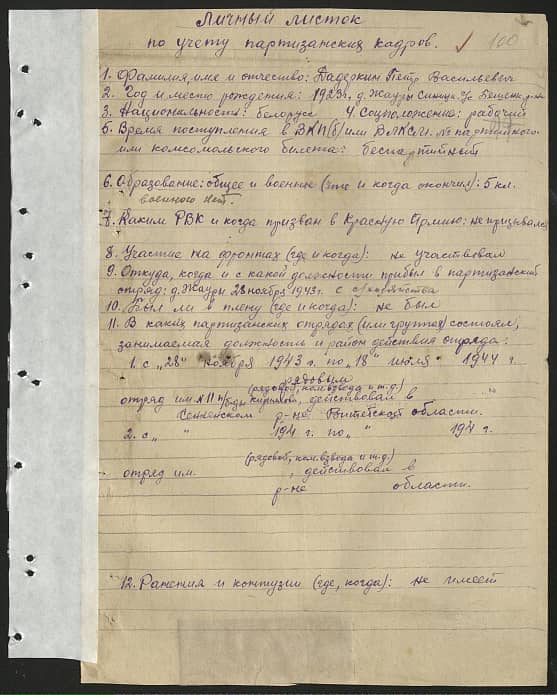 Личный листок
по учету партизанских кадров. ✓ 100
1. Фамилия, имя и отчество: Падеркин Петр Васильевич
2. Год и место рождения: 1923 г. д. Жауды с/с
3. Национальность: белорус 4. Соцположение: рабочий
5. Время поступления в ВКП(б) или ВЛКСМ. № партийного
или комсомольского билета: беспартийный
6. Образование: общее и военное (что и когда окончил): 5 кл.
военного нет.
7. Каким РВК и когда призван в Красную Армию: не призывался
8. Участие на фронтах (где и когда): не участвовал
9. Откуда, когда и с какой должности прибыл в партизанский
отряд: д. Жауды 28 ноября 1943 г. с с/хозяйства
10. Был ли в плену (где и когда): не был
11. В каких партизанских отрядах (или группах) состоял,
занимаемая должность и район действия отряда:
1. с „28" ноября 1943 г. по „18" июля 1944 г.
рядовым
(рядовой, ком. взвода и т.д.)
отряд им. № 11 п/бр-ды Кирилова, действовал в
Сенненском р-не Витебской области.
2. с „ " 194 г. по „ " 194 г.
(рядовой, ком. взвода и т.д.)
отряд им. , действовал в
р-не области.
12. Ранения и контузии (где, когда): не имеет